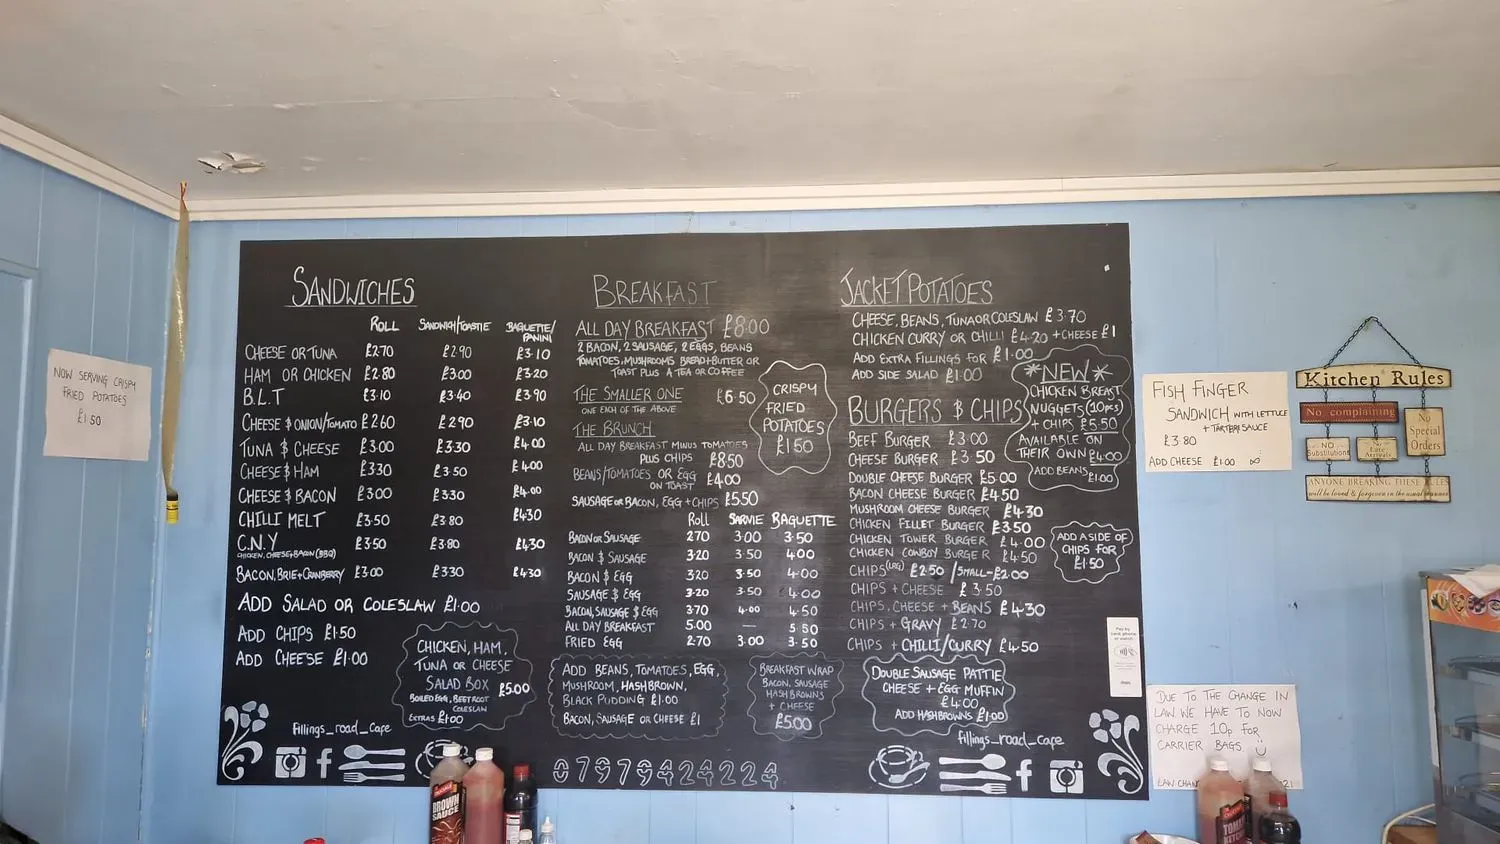 NOW SERVING CRISPY
FRIED POTATOES
£1.50
SANDWICHES
ROLL SANDWICH/TOASTIE BAGUETTE/
PANINI
CHEESE OR TUNA £2.70 £2.90 £3.10
HAM OR CHICKEN £2.80 £3.00 £3.20
B.L.T £3.10 £3.40 £3.90
CHEESE & ONION/TOMATO £2.60 £2.90 £3.10
TUNA & CHEESE £3.00 £3.30 £4.00
CHEESE & HAM £3.30 £3.50 £4.00
CHEESE & BACON £3.00 £3.30 £4.00
CHILLI MELT £3.50 £3.80 £4.30
C.N.Y £3.50 £3.80 £4.30
CHICKEN, CHEESE + BACON (BBQ)
BACON, BRIE + CRANBERRY £3.00 £3.30 £4.30
ADD SALAD OR COLESLAW £1.00
ADD CHIPS £1.50
ADD CHEESE £1.00
CHICKEN, HAM,
TUNA OR CHEESE
SALAD BOX £5.00
BOILED EGG, BEETROOT
COLESLAW
EXTRAS £1.00
fillings_road_cafe
BREAKFAST
ALL DAY BREAKFAST £8.00
2 BACON, 2 SAUSAGE, 2 EGGS, BEANS
TOMATOES, MUSHROOMS BREAD+BUTTER OR
TOAST PLUS A TEA OR COFFEE
THE SMALLER ONE £6.50
ONE EACH OF THE ABOVE
THE BRUNCH
ALL DAY BREAKFAST MINUS TOMATOES
PLUS CHIPS £8.50
BEANS/TOMATOES OR EGG £4.00
ON TOAST
SAUSAGE OR BACON, EGG + CHIPS £5.50
CRISPY
FRIED
POTATOES
£1.50
ROLL SARVIE BAGUETTE
BACON OR SAUSAGE 2.70 3.00 3.50
BACON & SAUSAGE 3.20 3.50 4.00
BACON & EGG 3.20 3.50 4.00
SAUSAGE & EGG 3.20 3.50 4.00
BACON, SAUSAGE & EGG 3.70 4.00 4.50
ALL DAY BREAKFAST 5.00 — 5.80
FRIED EGG 2.70 3.00 3.50
ADD BEANS, TOMATOES, EGG,
MUSHROOM, HASHBROWN,
BLACK PUDDING £1.00
BACON, SAUSAGE OR CHEESE £1
BREAKFAST WRAP
BACON, SAUSAGE
HASHBROWNS
+ CHEESE
£5.00
07979424224
JACKET POTATOES
CHEESE, BEANS, TUNA OR COLESLAW £3.70
CHICKEN CURRY OR CHILLI £4.20 + CHEESE £1
ADD EXTRA FILLINGS FOR £1.00
ADD SIDE SALAD £1.00
*NEW*
CHICKEN BREAST
NUGGETS (10pcs)
+ CHIPS £5.50
AVAILABLE ON
THEIR OWN £4.00
ADD BEANS
£1.00
BURGERS & CHIPS
BEEF BURGER £3.00
CHEESE BURGER £3.50
DOUBLE CHEESE BURGER £5.00
BACON CHEESE BURGER £4.50
MUSHROOM CHEESE BURGER £4.30
CHICKEN FILLET BURGER £3.50
CHICKEN TOWER BURGER £4.00
CHICKEN COWBOY BURGER £4.50
CHIPS (LRG) £2.50 / SMALL-£2.00
CHIPS + CHEESE £3.50
CHIPS, CHEESE + BEANS £4.30
CHIPS + GRAVY £2.70
CHIPS + CHILLI/CURRY £4.50
ADD A SIDE OF
CHIPS FOR
£1.50
DOUBLE SAUSAGE PATTIE
CHEESE + EGG MUFFIN
£4.00
ADD HASHBROWNS £1.00
fillings_road_cafe
FISH FINGER
SANDWICH WITH LETTUCE
+ TARTER SAUCE
£3.80
ADD CHEESE £1.00
Kitchen Rules
No complaining
NO
Substitutions
No
Late
Arrivals
No
Special
Orders
ANYONE BREAKING THESE RULES
will be loved & forgiven in the usual manner
DUE TO THE CHANGE IN
LAW WE HAVE TO NOW
CHARGE 10p FOR
CARRIER BAGS
LAW CHAN
21
BROWN
SAUCE
TOMATO